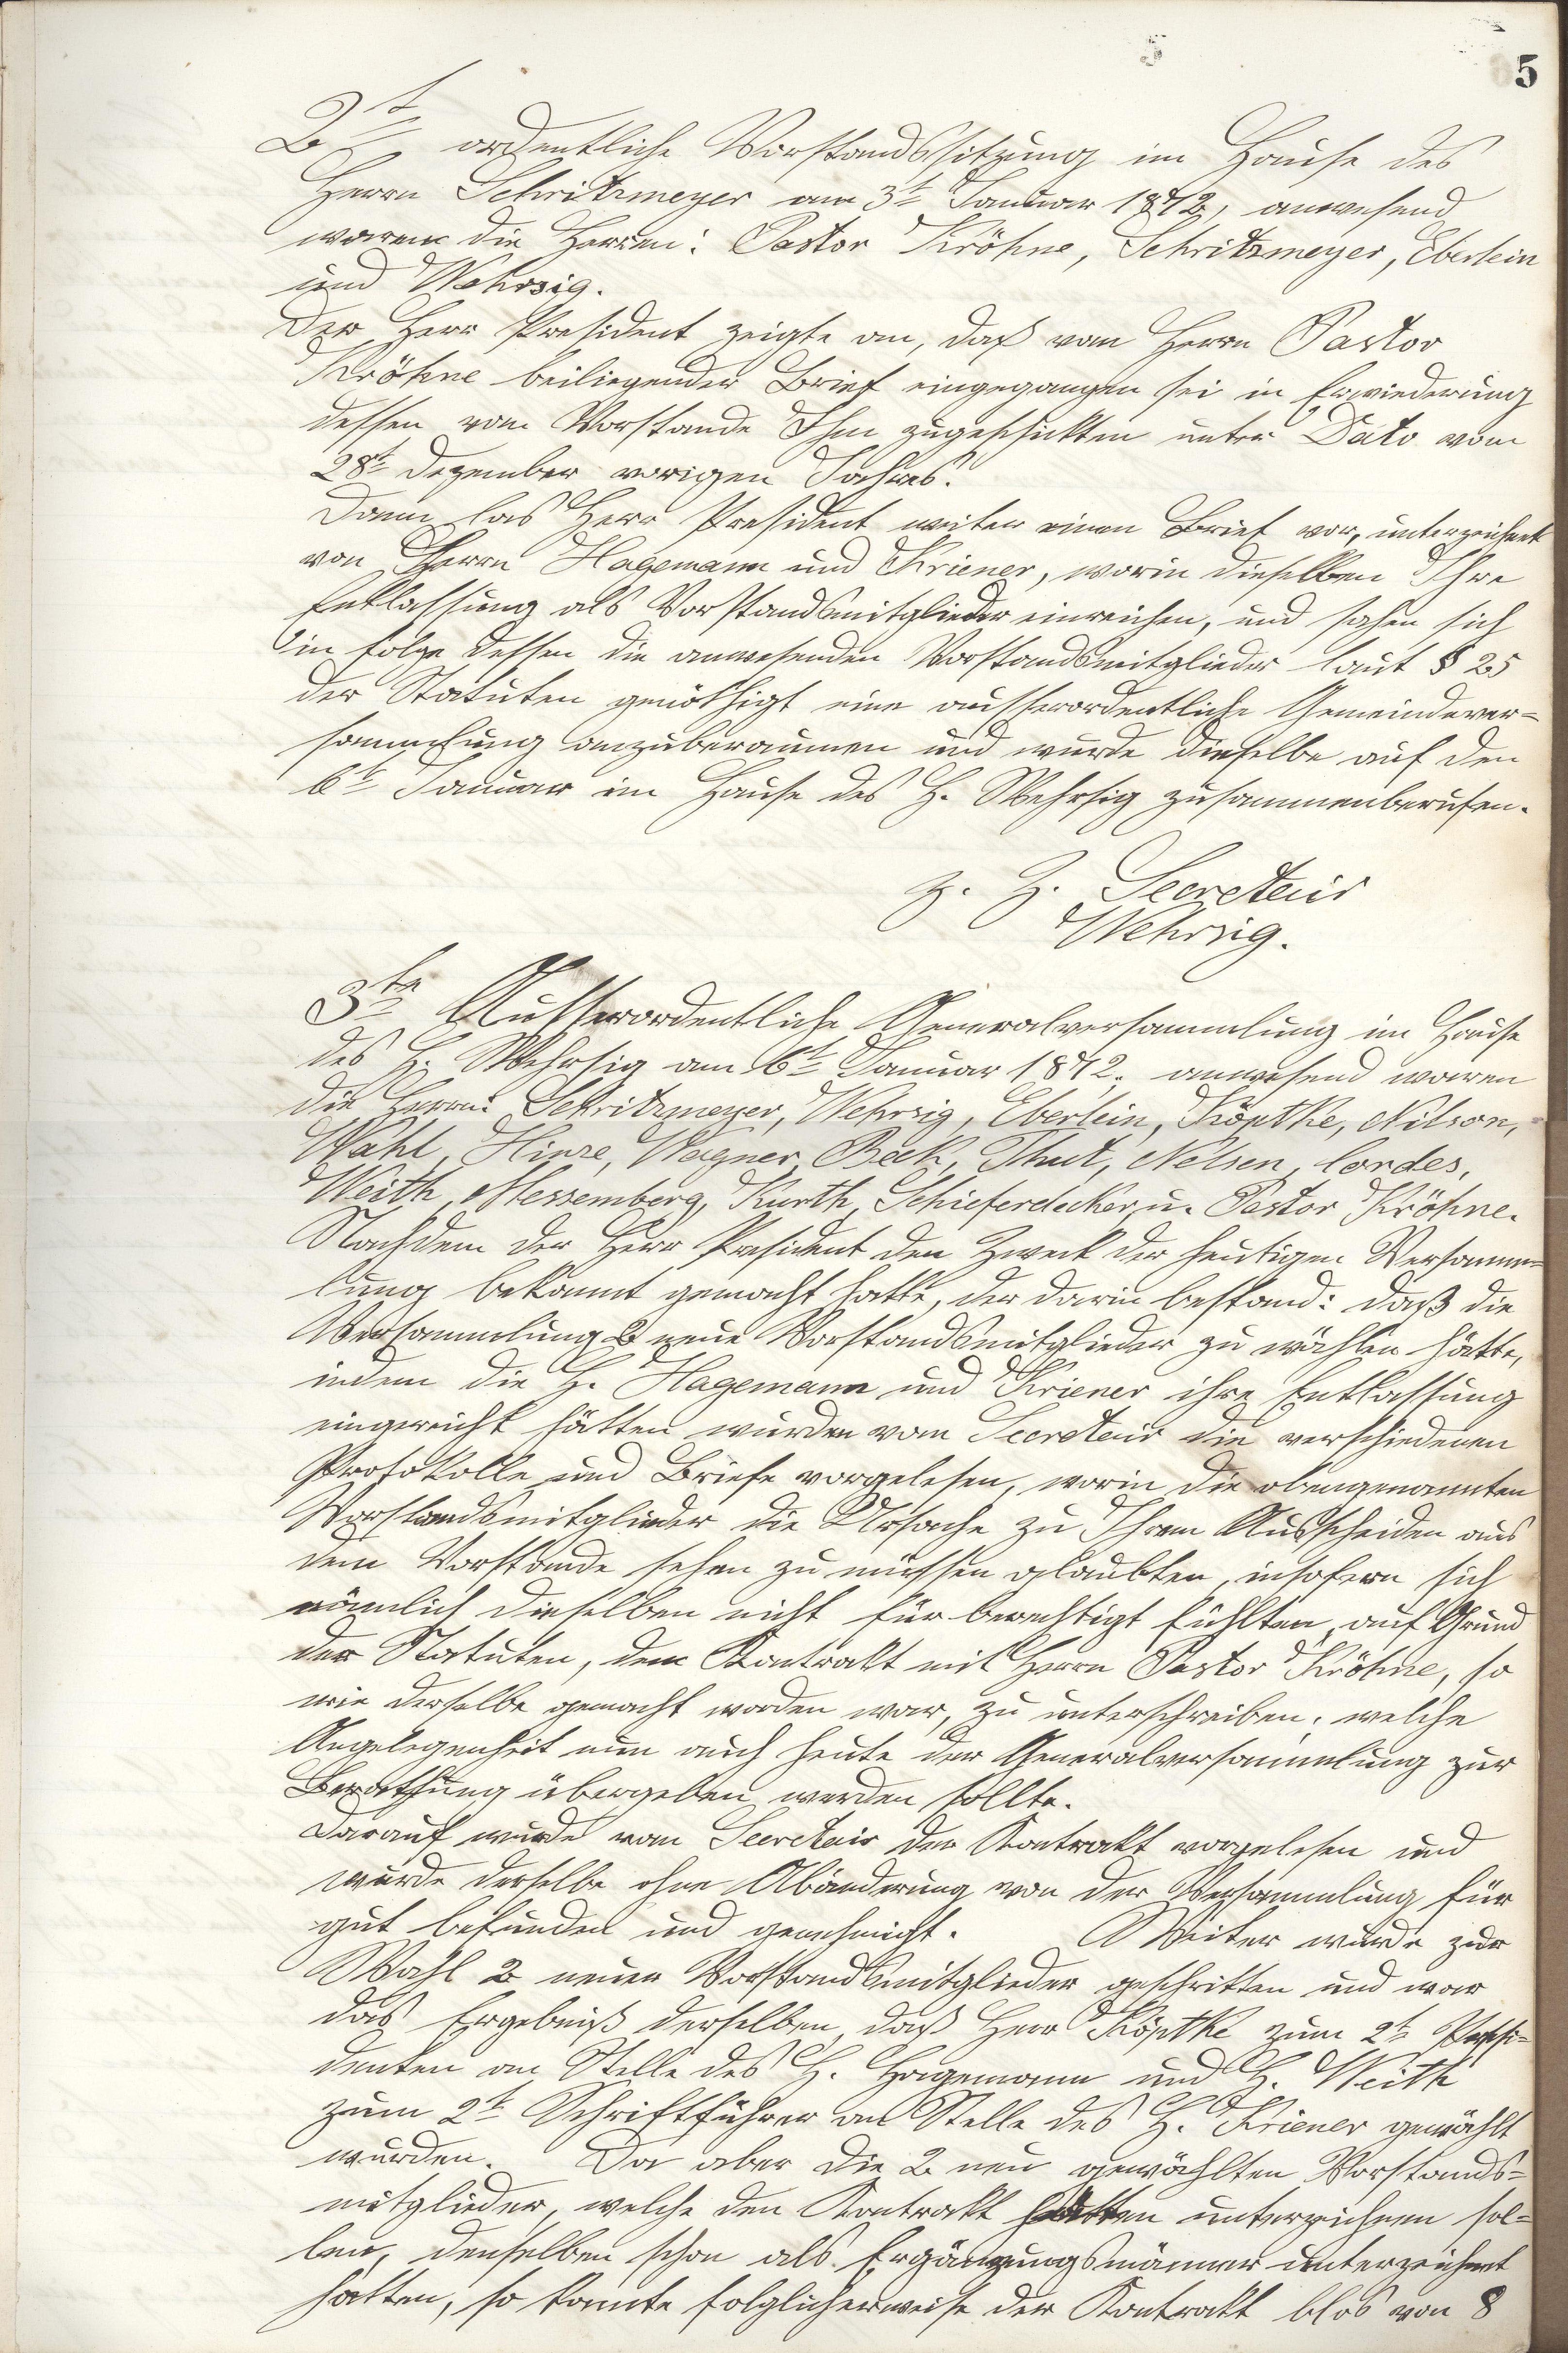 5
2t ordentliche Vorstandssitzung im Hause des
Herrn Schritzmeyer am 3t Januar 1872, anwesend
waren die Herren: Pastor Kröhne, Schritzmeyer, Eberlein
und Wehrsig.
Der Herr President zeigte an, daß vom Herrn Pastor
Kröhne beiliegender Brief eingegangen sei in Erwiederung
dessen vom Vorstande Ihm zugeschickten unter Dato vom
28t Dezember vorigen Jahres.
Dann las Herr President weiter einen Brief vor, unterzeichnet
von Herrn Hagemann und Kriener, worin dieselben Ihre
Entlassung als Vorstandsmitglieder einreichen, und sahen sich
in folge dessen die anwesenden Vorstandsmitglieder laut § 25
der Statuten genöthigt eine ausserordentliche Gemeindever=
sammlung anzuberaumen und wurde dieselbe auf den
6t Januar im Hause des H. Wehrsig zusammenberufen.
z. Z. Secretair
Wehrsig.
3te Ausserordentliche Generalversammlung im Hause
des H. Wehrsig am 6t Januar 1872. anwesend waren
die Herrn: Schritzmeyer, Wehrsig, Eberlein, Köptke, Nilson,
Wahl, Hinze, Wagner, Beck, Thut, Nelsen, Cordes,
Weith, Messemberg, Kurth, Schieferdecker, u. Pastor Kröhne.
Nachdem der Herr President den Zweck der heutigen Versamm=
lung bekannt gemacht hatte, der darin bestand: daß die
Versammlung 2 neue Vorstandsmitglieder zu wählen hätte,
indem die H. Hagemann und Kriener ihre Entlassung
eingereicht hätten wurden vom Secretair die verschiedenen
Protokolle und Briefe vorgelesen, worin die obengenannten
Vorstandsmitglieder die Ursache zu Ihrem Ausscheiden aus
dem Vorstande sehen zu müssen glaubten, insofern sich
nämlich dieselben nicht für berechtigt fühlten, auf Grund
der Statuten, den Kontrakt mit Herrn Pastor Kröhne, so
wie derselbe gemacht worden war, zu unterschreiben, welche
Angelegenheit nun auch heute der Generalversammlung zur
Berathung übergeben werden sollte.
Darauf wurde vom Secretair der Kontrakt vorgelesen und
wurde derselbe ohne Abänderung von der Versammlung für
gut befunden und genehmigt. Weiter wurde zur
Wahl 2 neuer Vorstandsmitglieder geschritten und war
das Ergebniß derselben, daß Herr Köptke zum 2t Presi=
denten an Stelle des H. Hagemann und H. Weith
zum 2t Schriftführer an Stelle des H. Kriener gewählt
wurden. Da aber die 2 neu gewählten Vorstands=
mitglieder, welche den Kontrakt hätten unterzeichnen sol=
len, denselben schon als Ergänzungsmänner unterzeichnet
hatten, so konnte folglicherweise der Kontrakt blos von 8